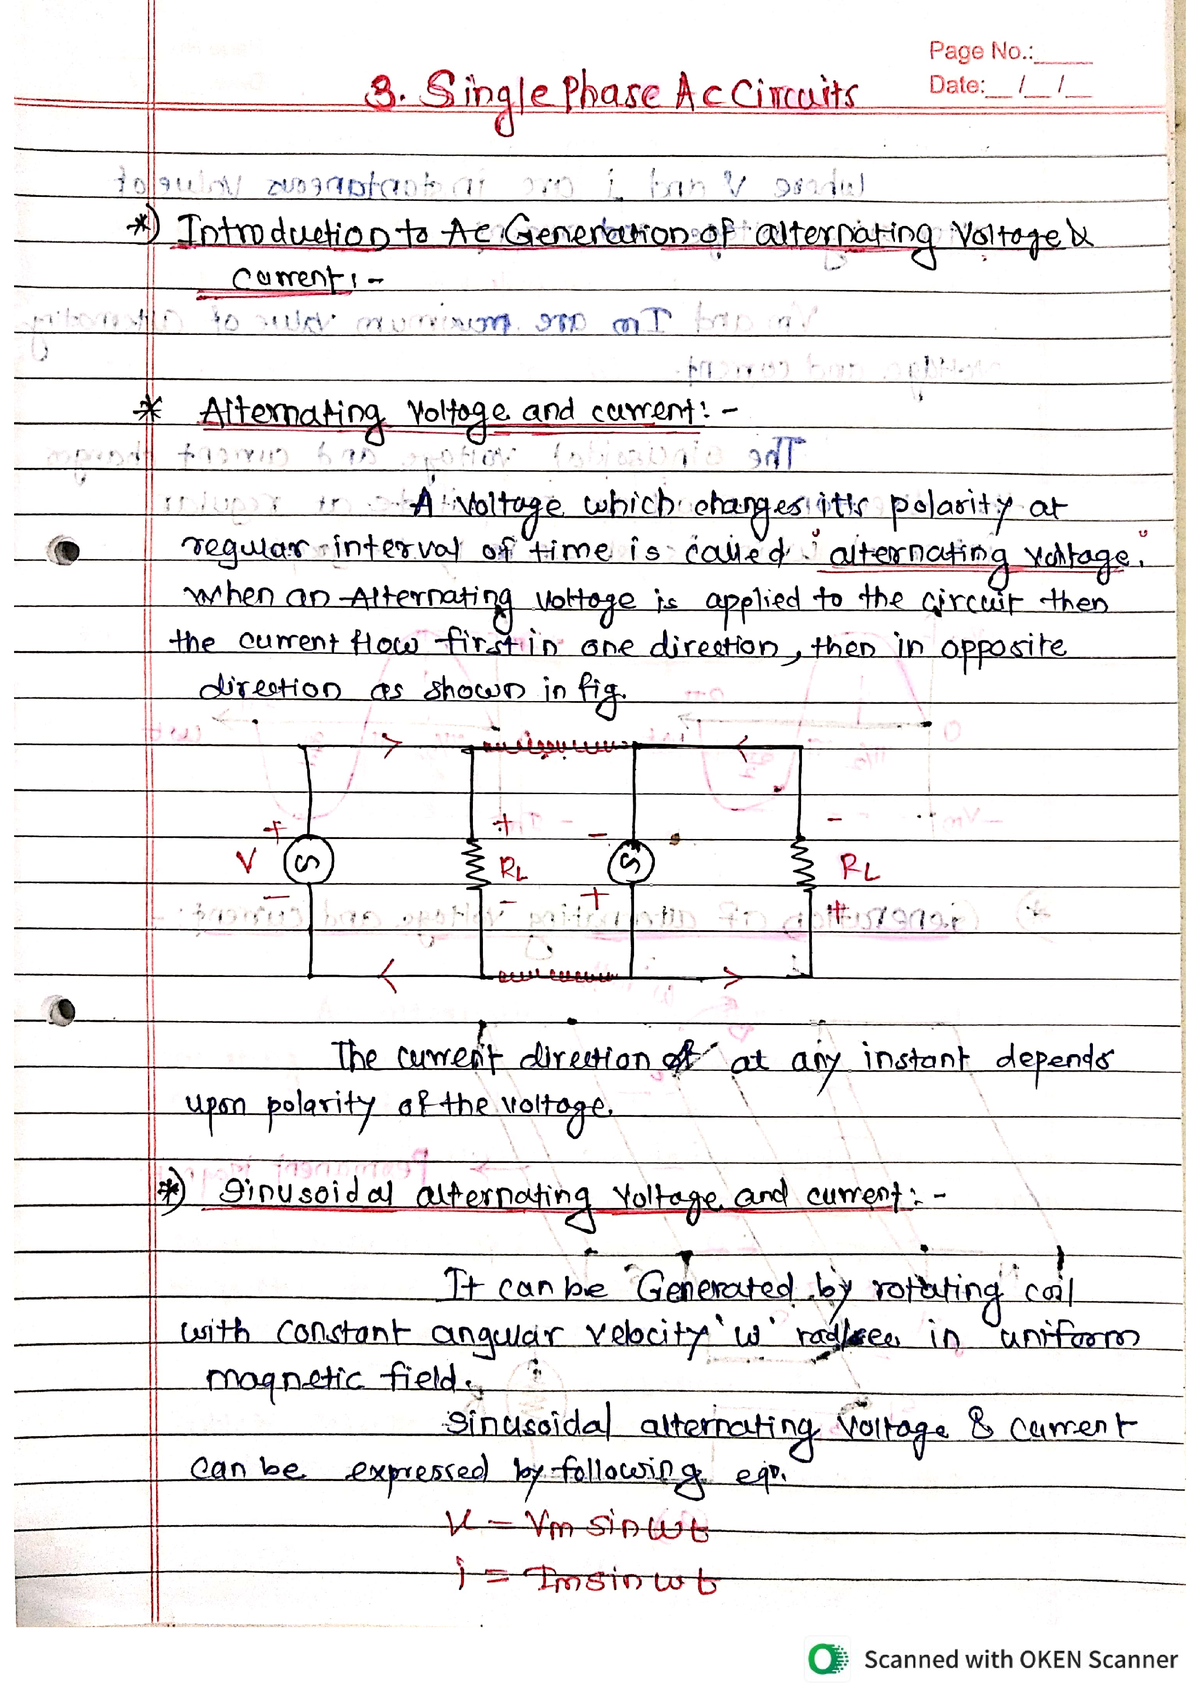 Page No.:
Date: / /
3. Single Phase Ac Circuits
*) Introduction to Ac Generation of alternating Voltage &
current :-
* Alternating voltage and current :-
A Voltage which changes it's polarity at
regular interval of time is called "alternating voltage."
when an Alternating voltage is applied to the circuit then
the current flow first in one direction, then in opposite
direction as shown in fig.
+ + - -
V S RL S RL
- - + +
The current direction at any instant depends
upon polarity of the voltage.
*) Sinusoidal alternating voltage and current :-
It can be Generated by rotating coil
with constant angular velocity 'w' rad/sec in uniform
magnetic field.
Sinusoidal alternating voltage & current
can be expressed by following eqn.
V = Vm sin wt
i = Im sin wt
Scanned with OKEN Scanner